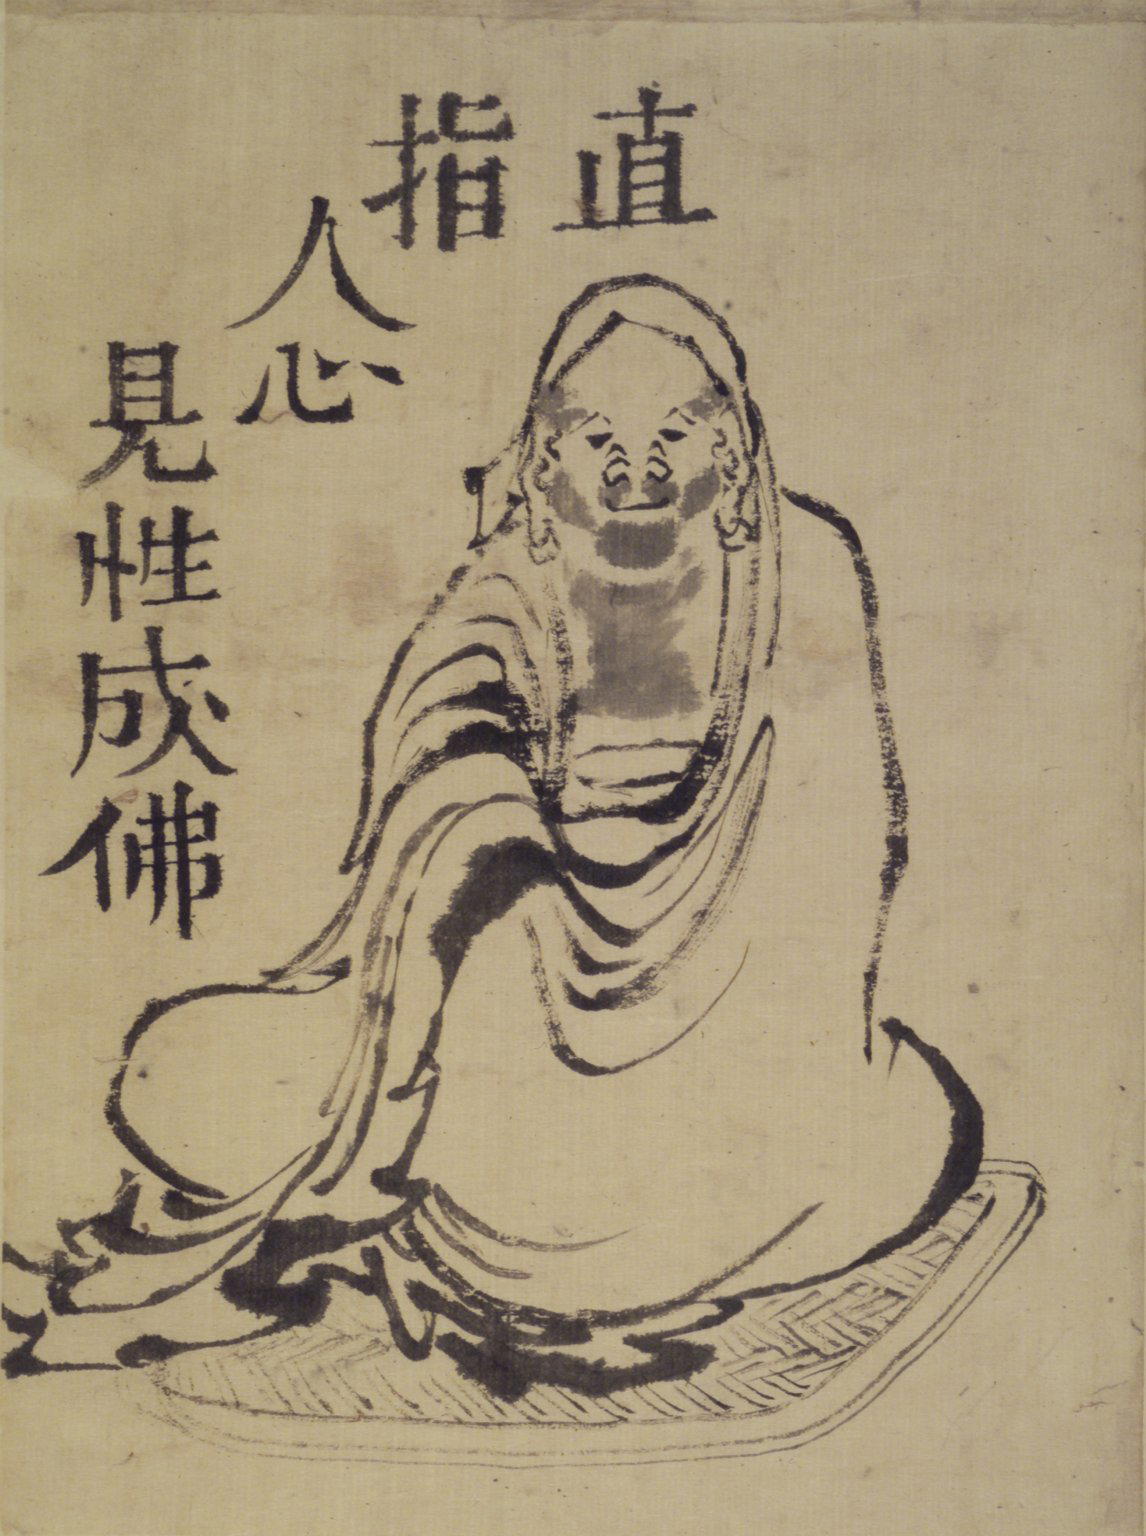 直
指
人心
見性成佛